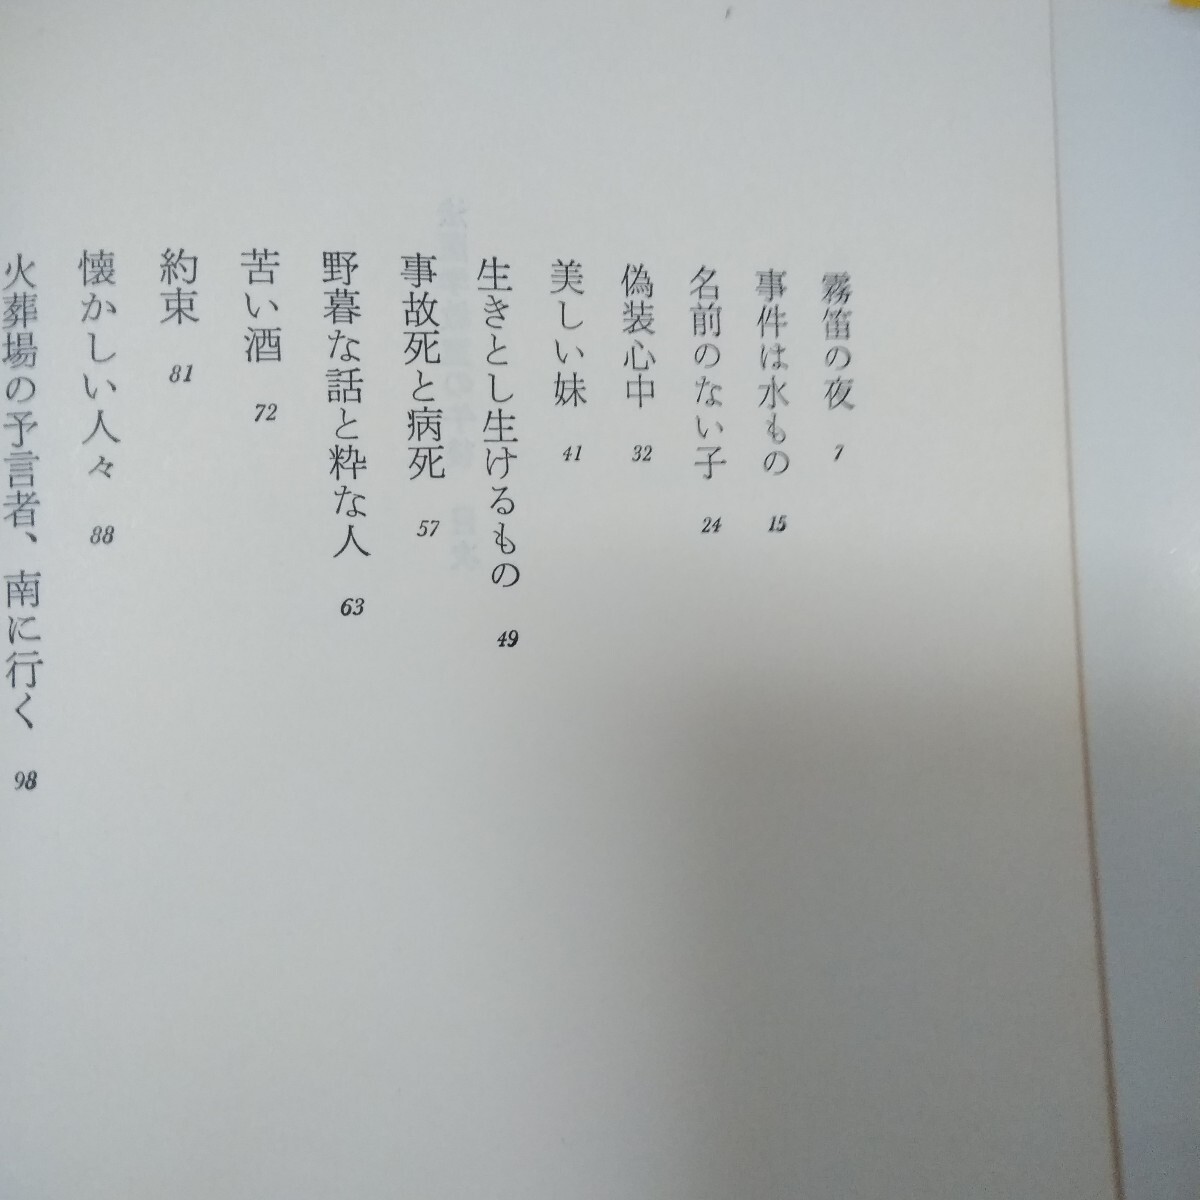 霧笛の夜 7
事件は水もの 15
名前のない子 24
偽装心中 32
美しい妹 41
生きとし生けるもの 49
事故死と病死 57
野暮な話と粋な人 63
苦い酒 72
約束 81
懐かしい人々 88
火葬場の予言者、南に行く 98